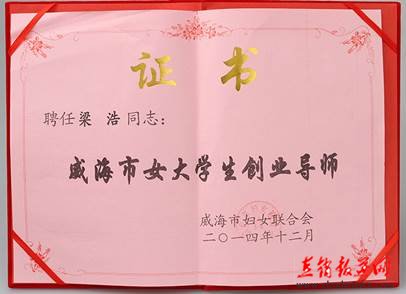 证书
聘任梁 浩同志：
威海市女大学生创业导师
威海市妇女联合会
二〇一四年十二月
直销报道网